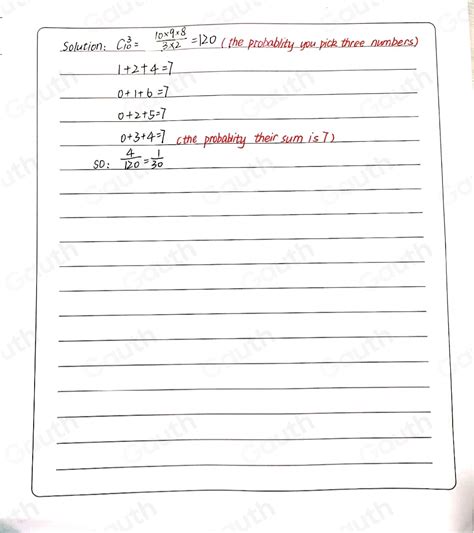 Solution: C₁₀³ = 10×9×8 / 3×2 = 120 (the probablity you pick three numbers)
1+2+4=7
0+1+6=7
0+2+5=7
0+3+4=7 (the probabity their sum is 7)
SO: 4/120 = 1/30
Gauth